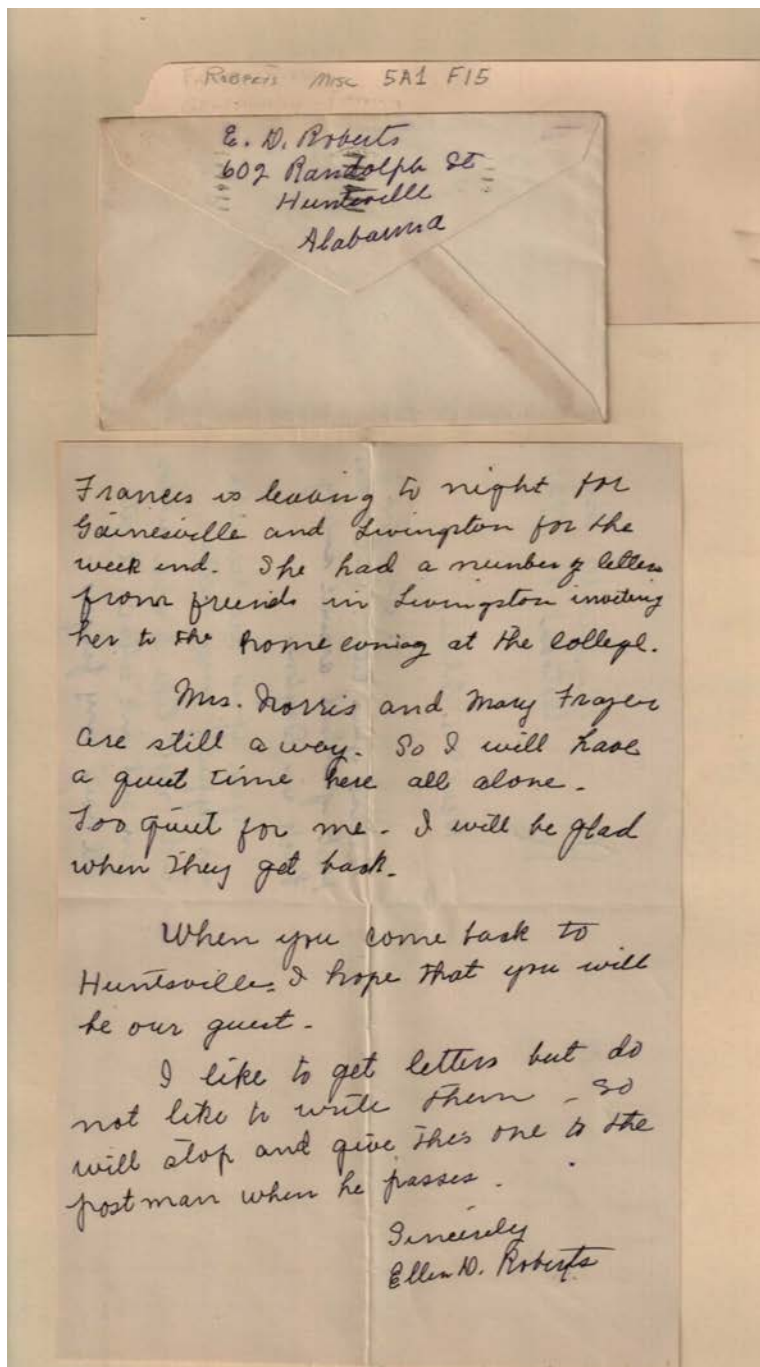 Roberts Misc 5A1 F15
E. D. Roberts
602 Randolph St
Huntsville
Alabama
Frances is leaving to night for
Gainesville and Livingston for the
week end. She had a number of letters
from friends in Livingston inviting
her to the home coming at the College.
Mrs. Norris and Mary Frazer
are still away. So I will have
a quiet time here all alone.
Too quiet for me. I will be glad
when they get back.
When you come back to
Huntsville, I hope that you will
be our guest.
I like to get letters but do
not like to write them - so
will stop and give this one to the
postman when he passes.
Sincerely
Ellen D. Roberts